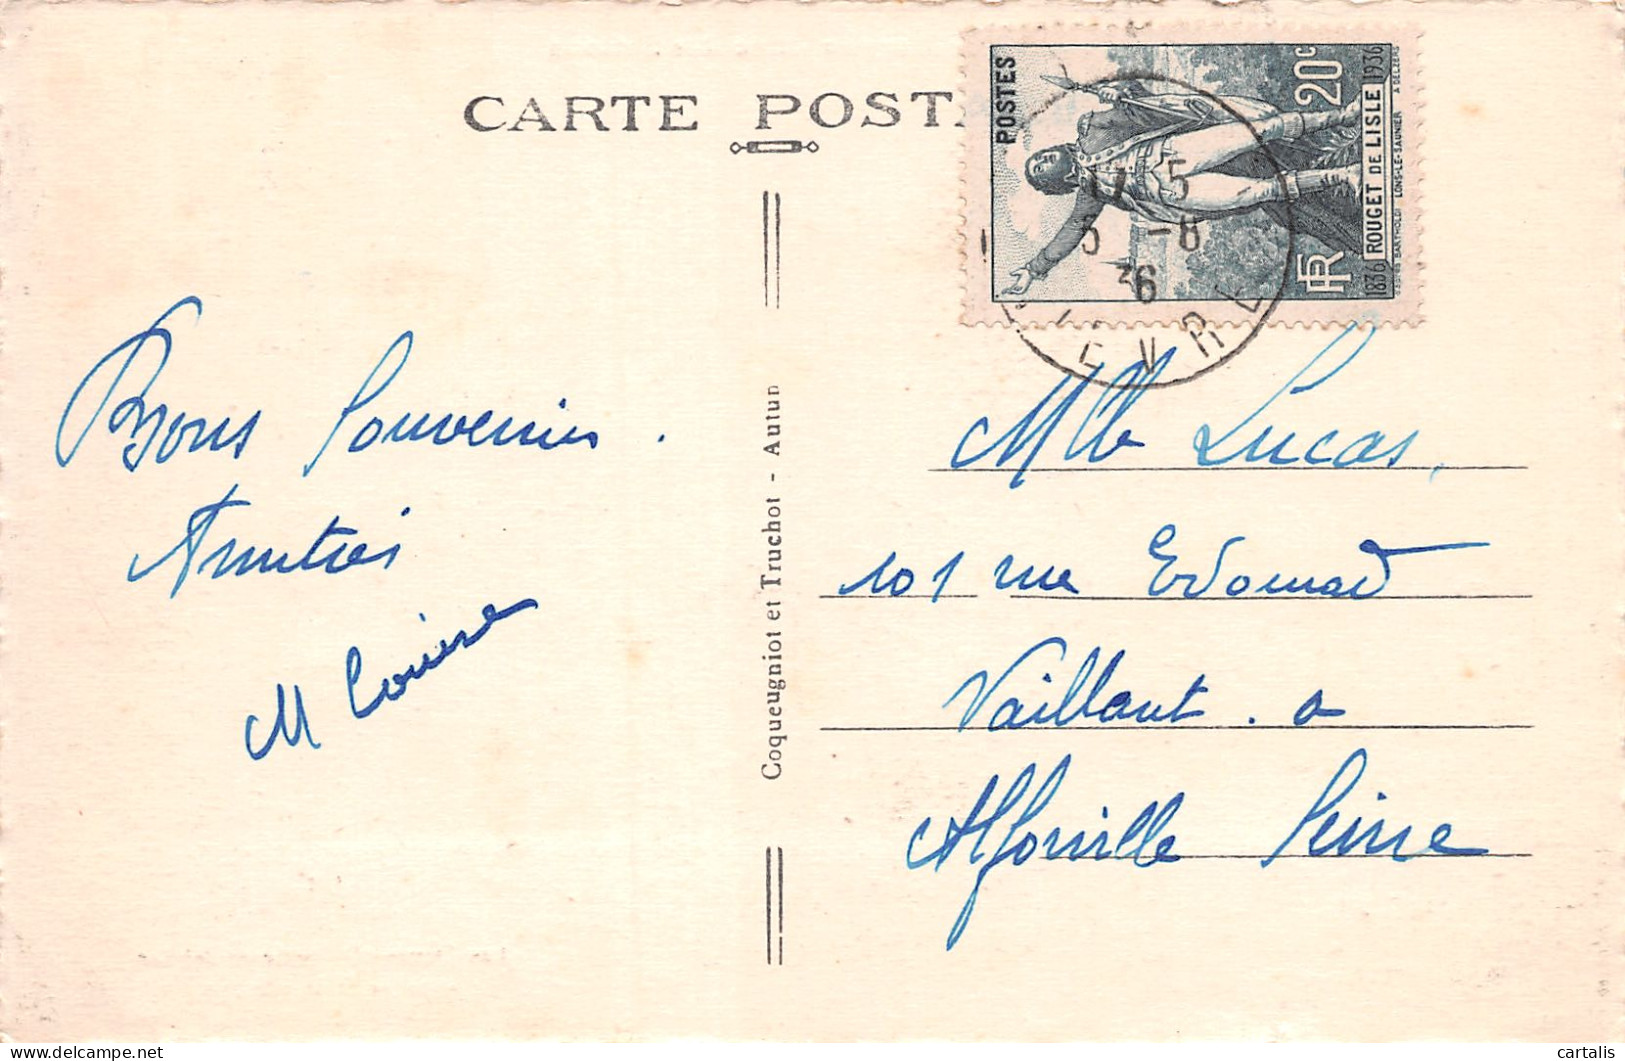 CARTE POST
POSTES
20c
1836 ROUGET DE LISLE 1936
LONS-LE-SAUNIER
RF
17 5
-8
36
Bons Souvenirs.
Amitiés
M Louise
Coqueugniot et Truchot - Autun
Mlle Lucas,
101 rue Edouard
Vaillant. a
Alforville Seine
delcampe.net
cartalis